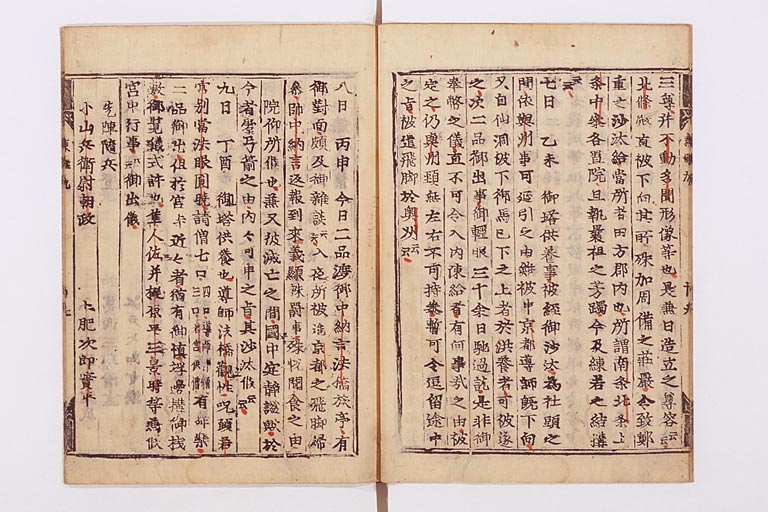 三尊并不動多聞形像等也是兼日造立之尊容云云
北條殿直被下向其所殊加周備之莊嚴令致鄭
重之沙汰給當所者田方郡内也所謂南条北条上
条中条各並院且執曩祖之芳躅今及練若之結搆
云云
七日 乙未 御塔供養事被經御沙汰為社頭之
間依奥州事可延引之由雖被申京都導師既下向
又自仙洞被下御馬已下之上者於供養者可被遂
之次二品御出事御輕服三千余日馳過訖是非御
奉幣之儀直不可令入内陳給者有何事哉之由被
定之仍奥州頚縣左右不可持參暫可令逗留途中
之旨被遣飛脚於奥州云云
八日 丙申 今日二品渡御中納言法橋亭有
御對面頗及御雜談云云入夜所被進京都之飛脚歸
參帥中納言返報到來義顯誅罸事殊悦聞食之由
院仰所候也兼又彼滅亡之間國中定靜謐歟於
今者嚢弓箭之由内々可申之旨其沙汰候云云
九日 丁酉 御塔供養也導師法橋觀性咒願若
宮別當法眼圓暁請僧七口有舞樂
二品御出但於宮寺近々者猶有御憚埋邊構御棧
敷御覽儀式許也隼人佐并梶原平三景時等兼候
宮中行事云云御出儀
先陣隨兵
小山兵衛尉朝政 土肥次郎實平